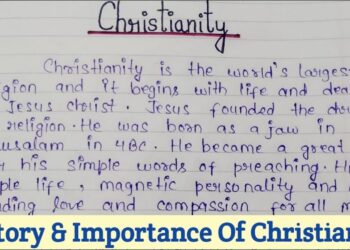 Christianity
Christianity is the world's larges
igion and it begins with life and dea
Jesus christ. Jesus founded the
religion. He was born as a jaw in
usalam in 4BC. He became a great
his simple words of preaching. H
ple life, magnetic personality and
ding love and compassion for all m
tory & Importance Of Christian